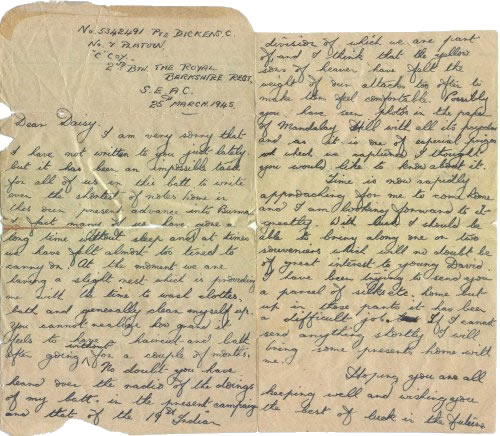 No. 5342491 Pte DICKENS, C.
No. 7 PLATOON
"C" COY.
2ND BN. THE ROYAL
BERKSHIRE REGT.
S.E.A.C.
25 MARCH. 1945.
Dear Daisy,
I am very sorry that
I have not written to you just lately
but it has been an impossible task
for all of us in this batt to write
even the shortest of notes home in
this our present advance into Burma.
In fact many of us have gone a
long time without sleep and at times
we have felt almost to tired to
carry on. At the moment we are
having a slight rest which is providing
me with the time to wash clothes,
bath and generally clean myself up.
You cannot realise how grand it
feels to have a haircut and bath
after going without for a couple of months.
No doubt you have
heard over the radio of the doings
of my batt. in the present campaign
and that of the 19th Indian
division of which we are part
of, and I think that the yellow
sons of heaven have felt the
weight of our attacks too often to
make them feel comfortable. Possibly
you have seen photos in the papers
of Mandalay Hill with all its pagodas
and as it is one of especial prizes
which we captured I thought
you would like to know about it.
Time is now rapidly
approaching for me to come home
and I am looking forward to it
greatly. With luck I should be
able to bring along one or two
souvenirs which will no doubt be
of great interest to young David.
I have been trying to send you
a parcel of silks etc. home but
up in those parts it has been
a difficult job. If I cannot
send anything shortly I will
bring some presents home with
me.
Hoping you are all
keeping well and wishing you
the best of luck in the future.